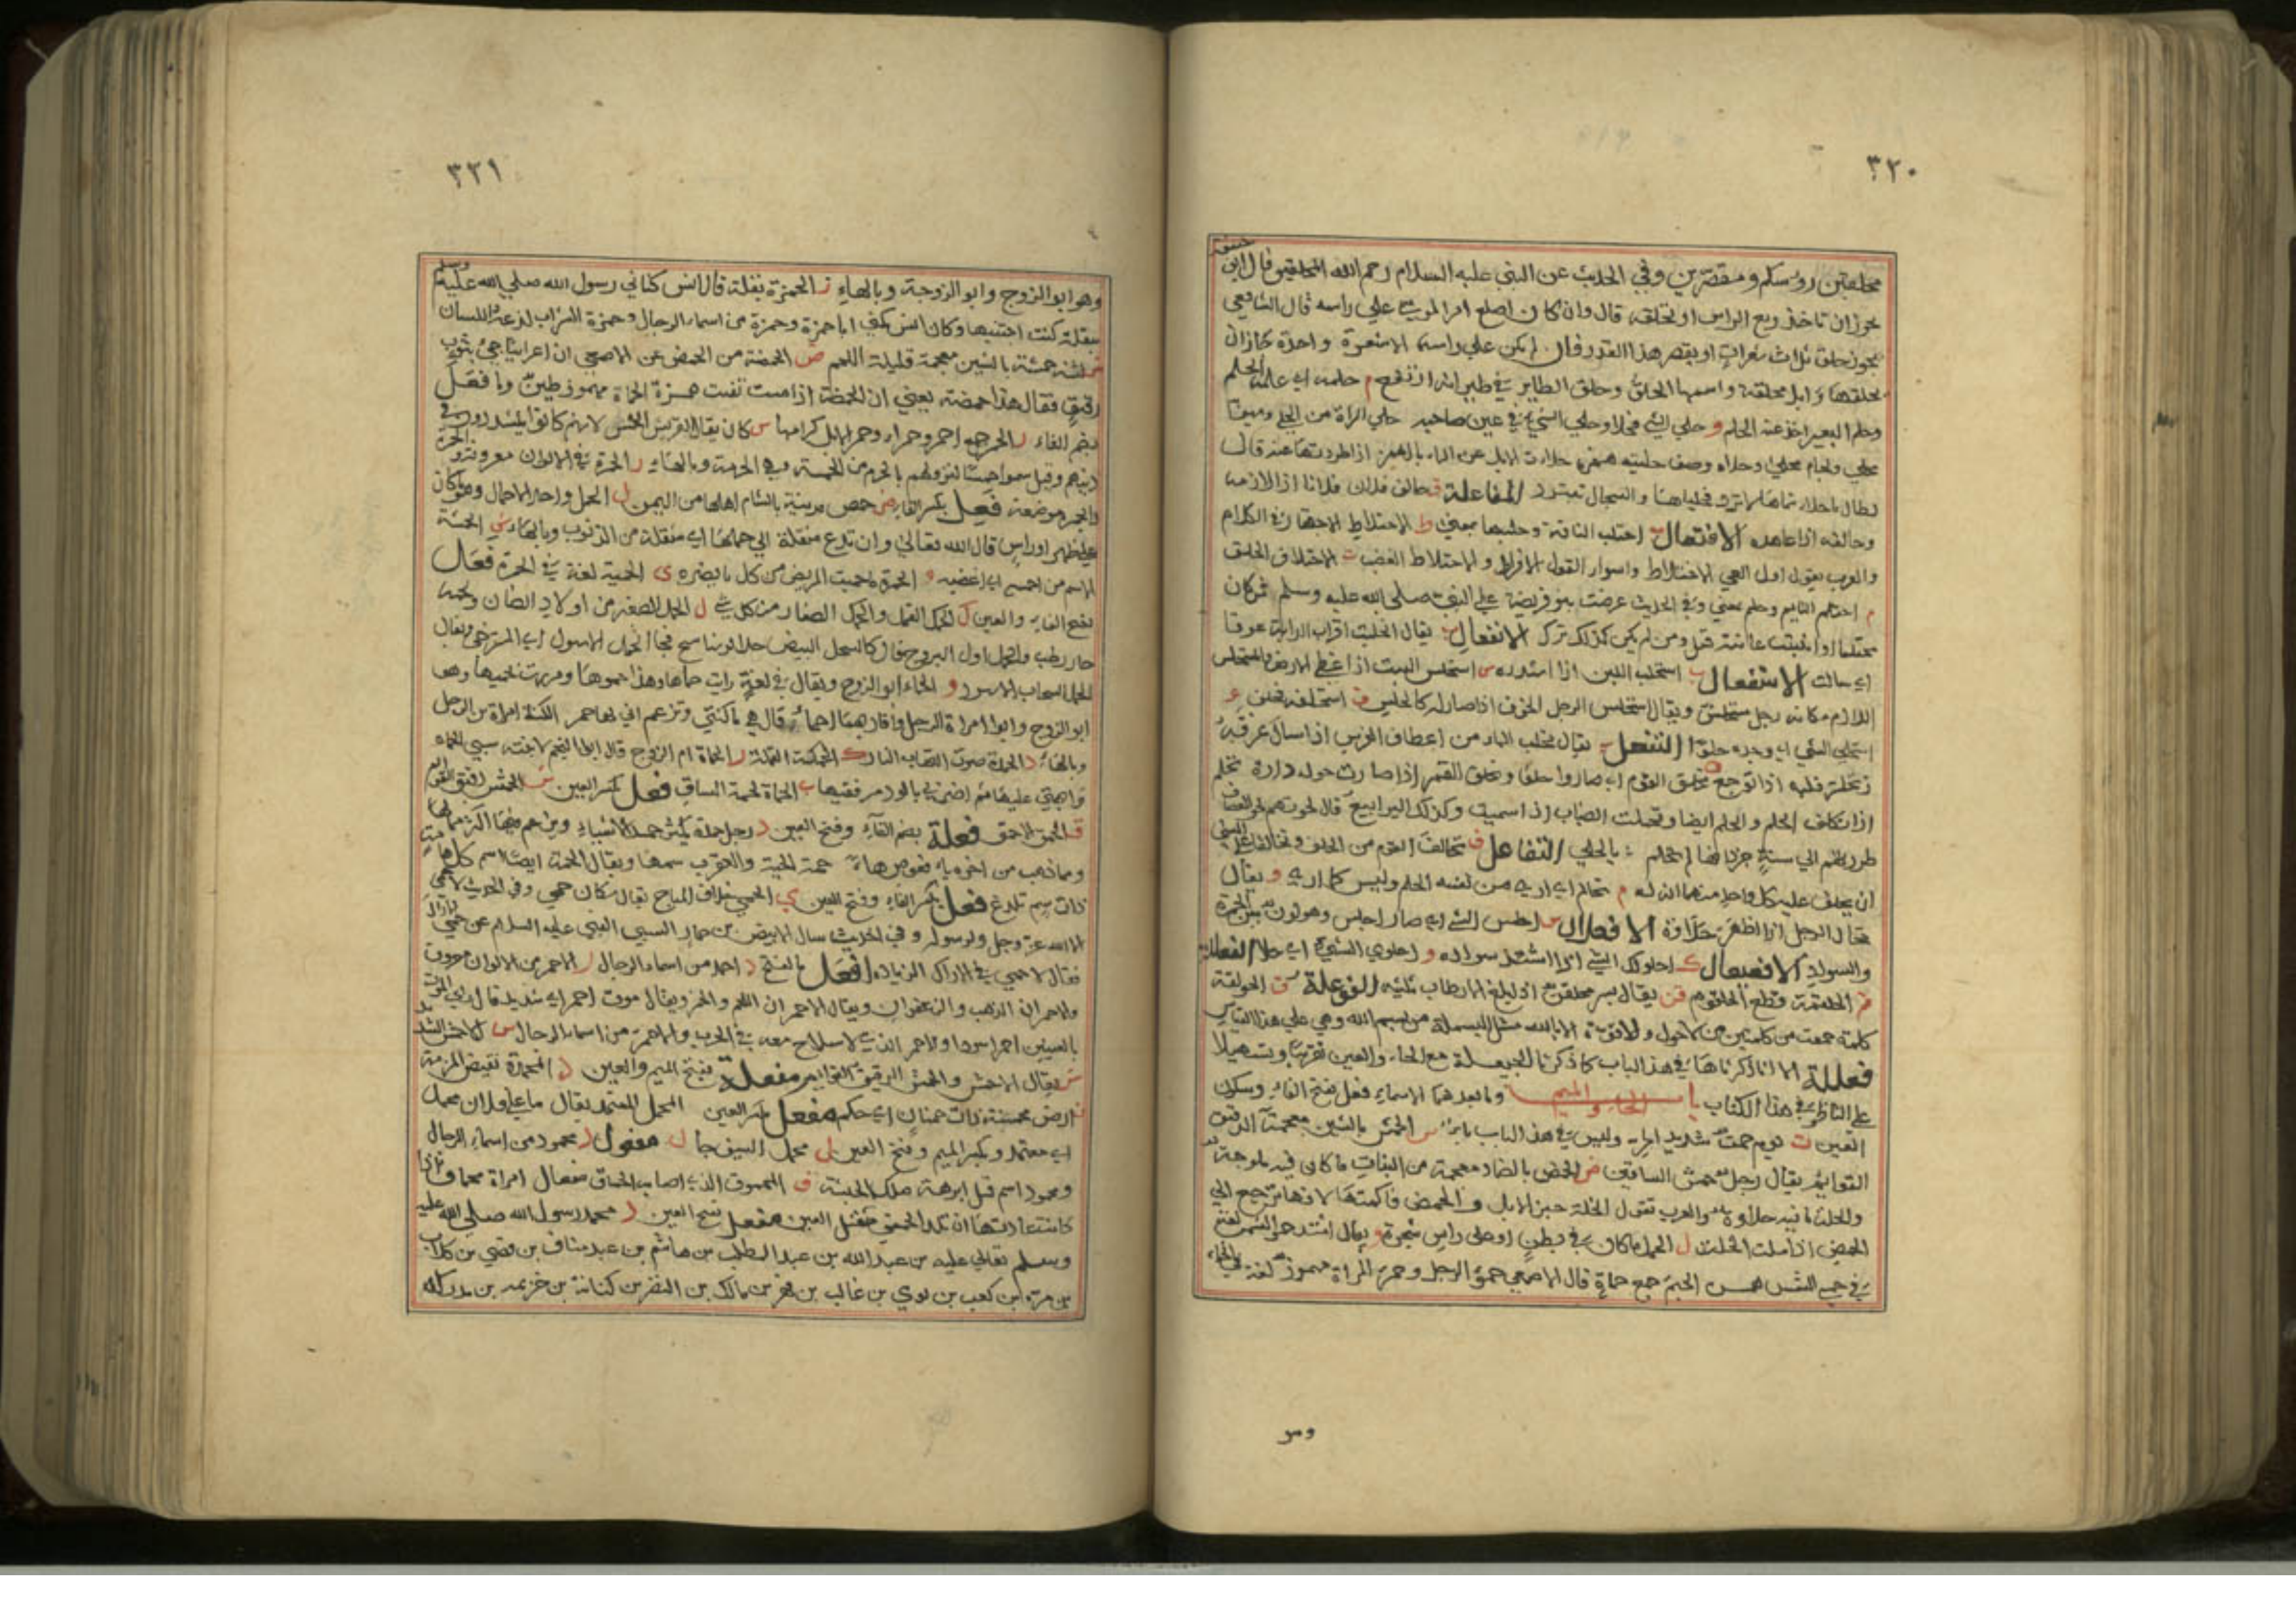 ٣٢٠
محلقين روسكم ومقصرين وفي الحديث عن النبي عليه السلام رحم الله المحلقين قال ابو حنيفة
يجوز ان تاخذ ربع الراس او تحلقه قال وان كان اصلع امر الموسي علي راسه قال الشافعي
يجوز حلق ثلاث شعرات او يقصر هذا القدر وقال لم يكن علي راسه الا شعرة واحدة كان ان
يحلقها وابل محلقة واسمها الحلق وحلق الطاير في طيرانه ارتفع م حلمه اي علمه الحلم
وحلم البعير اخذ عنه الحلم و حلي الشي فحلا وحلي الشي في عين صاحبه حلي المراة من الحلي
المفاعلة ف حالف فلان فلانا اذا لازمه
وحالفه اذا عاهده الافتعال ب احتلب الناقة وحلبها بمعني ط الاحتلاط الاجتهاد في الكلام
والعرب يقول اول العي الاختلاط واسوا القول الافراط والاحتلاط الغضب ق الاحتلاق الحلق
م احتلم النايم وحلم بمعني وفي الحديث عرضت بنو قريضة علي النبي صلي الله عليه وسلم فمن كان
محتلما او انبتت عانته قتل ومن لم يكن كذلك ترك الانفعال ب يقال انحلبت اقراب الدابة عرقا
اي سالت الاستفعال ب استحلب اللبن اذا استدره س استحلس النبت اذا غطي الارض
اللازم مكانه رجل مستحلس ويقال استحلس الرجل الخوف اذا صار له كالحلس ف استحلفه فحلف
استحلي الشي اي وجده حلوا التفعل ب يقال تحلب الماء من اعطاف الفرس اذا سال عرقه
ز تحلز قلبه اذا توجع ق تحلق القوم اي صاروا حلقا وتحلق القمر اذا صارت حوله دارة م تحلم
اذا تكلف الحلم والحلم ايضا وتحلمت الضباب اذا سمنت وكذلك اليرابيع قال
طردنهم الي سنة جرذانها لم تحلم ي تحلي بالحلي التفاعل ف تحالف القوم من الحلف
ان يحلف عليه كل واحد منهما انه له م تحالم اي اري من نفسه الحلم وليس كما اري و يقال
تحالا الرجل اذا اظهر حلاوة الافعلال س احلس الشي اي صار احلس وهو لون بين الحمرة
والسواد الافعيعال ك احلولك الشي اذا اشتد سواده و احلولي الشي اي حلا الفعللة
م الحلقمة قطع الحلقوم ن يقال بسر محلقن اذا بلغ الارطاب ثلثيه الفوعلة ق الحولقة
كلمة جمعت من كلمتين من لا حول ولا قوة الا بالله مثل البسملة من بسم الله وهي علي هذا القياس
فعللة الا انا ذكرناها في هذا الباب كما ذكرنا الحيعلة مع الحاء والعين تقريبا وتسهيلا
علي الناظر في هذا الكتاب باب الحاء والميم وما بعدهما الاسماء فعل بفتح الفاء وسكون
العين ت يوم حمت شديد الحر وليس في هذا الباب باء س الحمش بالشين معجمة الدقيق
القوايم يقال رجل حمش الساقين ض الحمض بالضاد معجمة من النبات ما كان فيه ملوحة
والخلة ما فيه حلاوة والعرب تقول الخلة خبز الابل والحمض فاكهتها لانها ترجع الي
الحمض اذا ملت الخلة ل الحمل ما كان في بطن او علي راس شجرة و يقال اشتد حمو الشمس لغة
في حمي الشمس الحمؤ جمع حماة قال الاصمعي حمؤ الرجل وحمؤ المراة مهموز لغة في الحماء
وهو
٣٢١
وهو ابو الزوج وابو الزوجة وبالهاء ز الحمزة بقلة قال انس كناني رسول الله صلي الله عليه وسلم
ببقلة كنت اجتنيها وكان انس يكني ابا حمزة وحمزة من اسماء الرجال وحمزة الشراب لذعه اللسان
ش لثة حمشة بالشين معجمة قليلة اللحم ض الحمضة من الحمض عن الاصمعي ان اعرابيا جيء بثوب
رقيق فقال هذا حمضة يعني ان الحمضة اذا مست تفتت همزة الحماة مهموز طين وما فعل
بضم الفاء ر الحمر جمع احمر وحمراء وحمر الابل كرامها س كان يقال لقريش الحمس لانهم كانوا يتشددون في
دينهم وقيل سموا حمسا لنزولهم بالحرم من الحمسة وهي الحرمة وبالهاء ر الحمرة في الالوان معروفة والحمرة
والحمر موضعه فعل بكسر الفاء ص حمص مدينة بالشام اهلها من اليمن ل الحمل واحد الاحمال وهو ما كان
علي ظهر او راس قال الله تعالي وان تدع مثقلة الي حملها اي مثقلة من الذنوب وبالهاء ش الحمشة
الاسم من احمسه اي اغضبه و الحموة ما حميت المريض من كل ما يضره ي الحمية لغة في الحموة فعل
بفتح الفاء والعين ل الحمل القمل والحمك الصغار من كل شي ل الحمل الصغير من اولاد الضان وجمعه
ابو الزوج وابوا امراة الرجل واقاربها احماء قال هي ما كنتي وتزعم اني لها حم الكنة امراة ابن الرجل
وبالهاء د الحمدة صوت التهاب النار ك الحمكة القملة ر الحماة ام الزوج قال ابو النجم لابنته سبي الحماة
وابهتي عليها ثم اضربي بالود مرفقيها ب الحماة لحمة الساق فعل بكسر العين ش الحمش الدقيق القوايم
ق الحمق الاحمق فعلة بضم الفاء وفتح العين د رجل حمدة يكثر حمد الاشياء ويزعم فيها اكثر مما فيها
ومما ذهب من اخره ياء فعوض هاء حمة الحية والعقرب سمها ويقال الحمة ايضا اسم كل هامة
ذات سم تلدغ فعل بكسر الفاء وفتح العين ي الحمي خلاف المباح يقال مكان حمي وفي الحديث لا حمي
الا لله عز وجل ولرسوله وفي الحديث سال الابيض بن حمال السبئي النبي عليه السلام عن حمي الاراك
فقال لا حمي في الاراك الزيادة افعل بالفتح د احمد من اسماء الرجال ر الاحمر من الالوان معروف
والاحمران الذهب والزعفران ويقال الاحمران اللحم والخمر ويقال موت احمر اي شديد
والاحمر الذي لا سلاح معه في الحرب والاحمر من اسماء الرجال س الاحمس الشديد
ش يقال الاحمش والحمش الدقيق القوايم مفعلة بفتح الميم والعين د المحمدة نقيض المذمة
ن ارض محمنة ذات حمنان اي حلم مفعل بكسر العين المحمل المعتمد يقال ما علي فلان محمل
اي معتمد وبكسر الميم وفتح العين ل محمل السيف حمال مفعول د محمود من اسماء الرجال
ومحمود اسم فيل ابرهة ملك الحبشة ق المحموق الذي اصابه الحماق مفعال امراة محماق اذا
كانت عادتها ان تلد الحمقي مثقل العين مفعل بفتح العين د محمد رسول الله صلي الله عليه
وسلم تعالي عليه بن عبد الله بن عبد المطلب بن هاشم بن عبد مناف بن قصي بن كلاب
بن مرة بن كعب بن لوي بن غالب بن فهر بن مالك بن النضر بن كنانة بن خزيمه بن مدركه